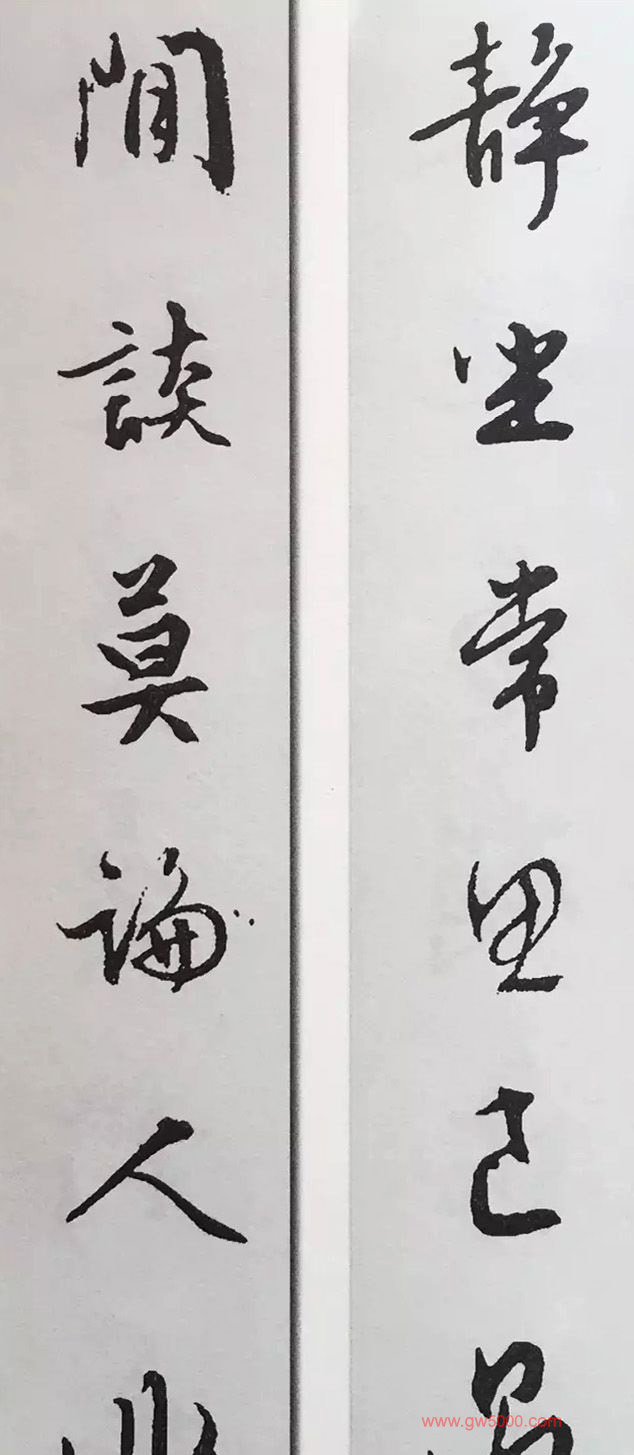 静坐常思己
閒談莫論人
www.gw5000.com